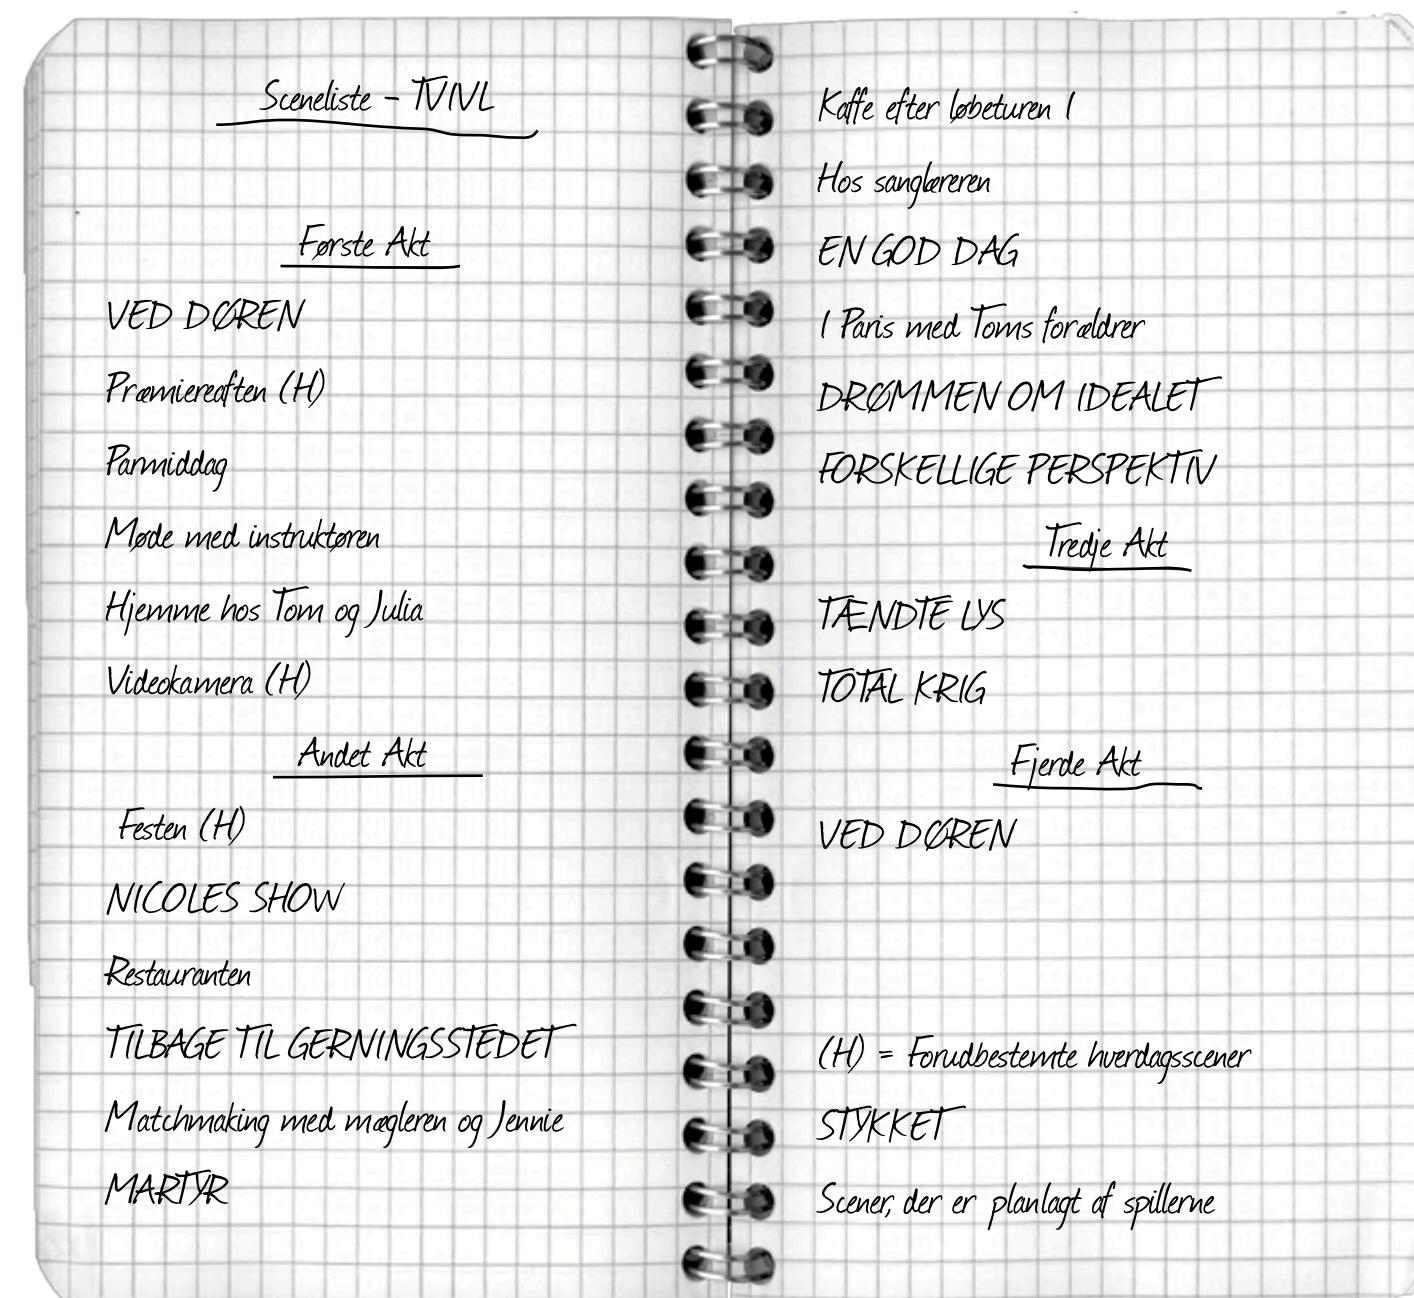 Sceneliste - TVIVL
Første Akt
VED DØREN
Præmiereaften (H)
Parmiddag
Møde med instruktøren
Hjemme hos Tom og Julia
Videokamera (H)
Andet Akt
Festen (H)
NICOLES SHOW
Restauranten
TILBAGE TIL GERNINGSSTEDET
Matchmaking med mægleren og Jennie
MARTYR
Kaffe efter løbeturen I
Hos sanglæreren
EN GOD DAG
I Paris med Toms forældrer
DRØMMEN OM IDEALET
FORSKELLIGE PERSPEKTIV
Tredje Akt
TÆNDTE LYS
TOTAL KRIG
Fjerde Akt
VED DØREN
(H) = Forudbestemte hverdagsscener
STYKKET
Scener, der er planlagt af spillerne